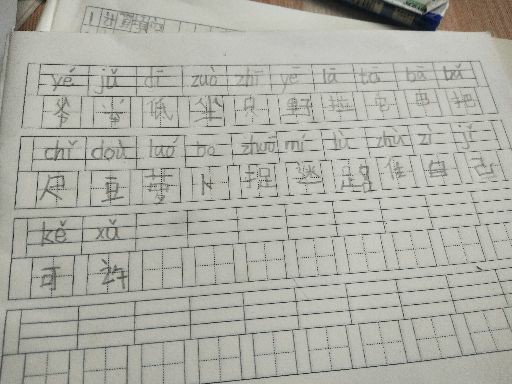 yé jǔ dī zuò zhī yě lā tā bā bǎ
爷 举 低 坐 只 野 拉 它 巴 把
chǐ dōu luó bo zhuō mí lù zhù zì jǐ
尺 萝 卜 捉 迷 路 住 自 己
kě xǔ
可 许